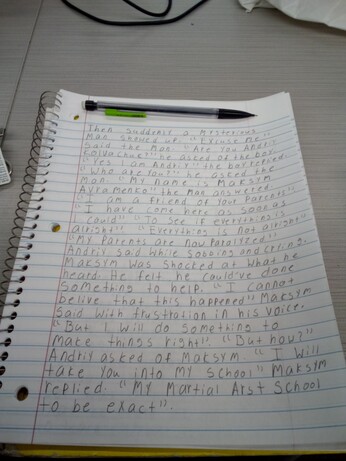 Then suddenly a mysterious
Man showed up. "Exuse me"
Said the Man. "Are you Andriy
Kolvachuk?" he asked of the boy.
"Yes I am Andriy" the boy replied.
"Who are you?" he asked the
Man. "My name is Maksym
Avramenko" the Man answered.
"I am a friend of your Parents"
"I have come here as soon as
I could" "To see if everything is
alright" "Everything is not alright"
"My Parents are now Paralyzed"
Andriy said while sobbing and crying.
Maksym was shocked at what he
heard. He felt he could've done
something to help. "I cannot
belive that this happened" Maksym
said with frustration in his voice.
"But I will do something to
make things right". "But how?"
Andriy asked of Maksym "I will
take you into my school" Maksym
replied. "My Martial Arst School
to be exact".